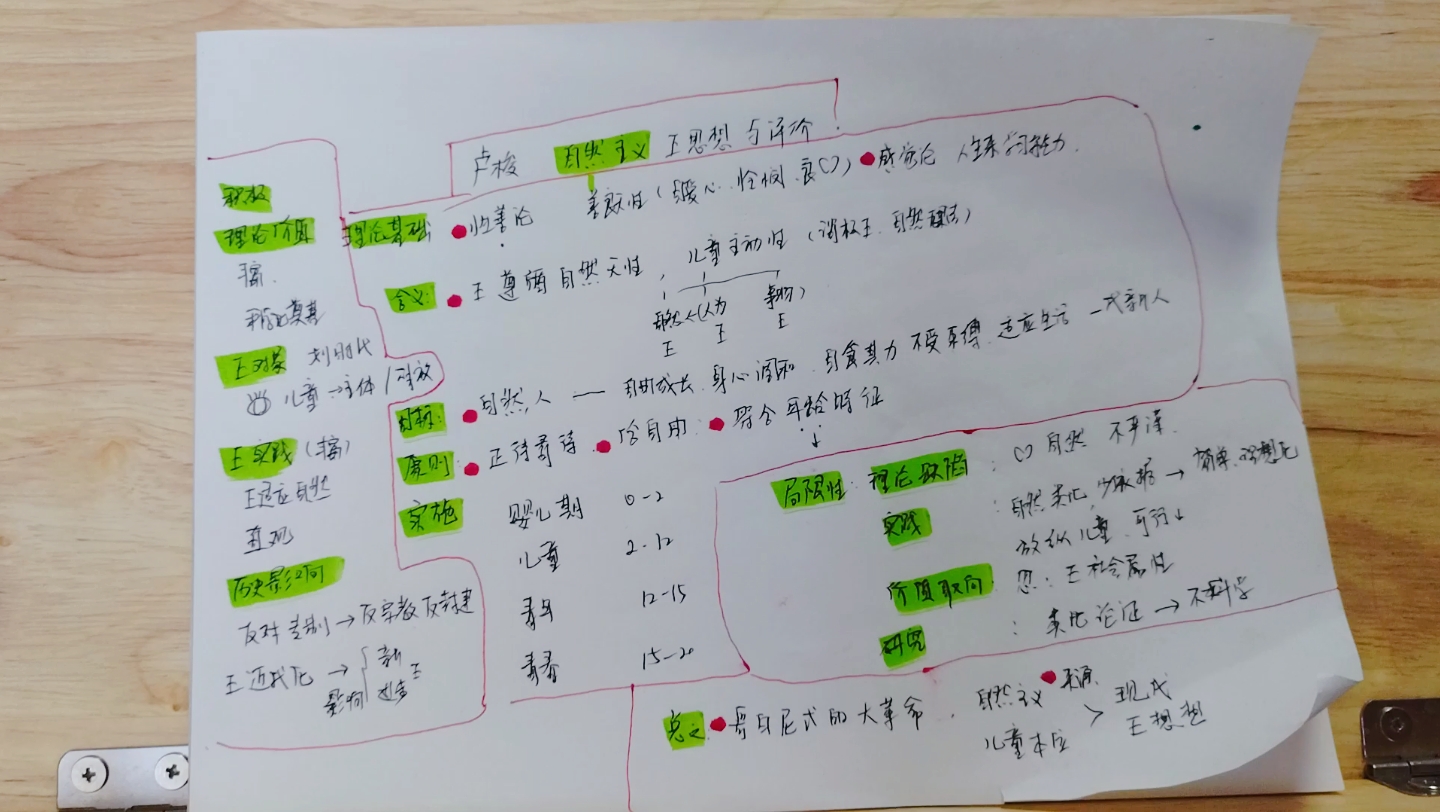 卢梭 自然主义 王思想与评价
理论基础 性善论 善良性（爱心、怜悯、良♡） 感觉论 人生来学习能力
含义: 王尊循自然天性，儿童主动性（消极王、自然
自然 人为 事物）
王 王 王
目标: 自然人 — 自由成长、身心调和、自食其力 不受束缚、适应生活 一代新人
原则: 正待 给自由 符合年龄特征
实施 婴儿期 0-2
儿童 2-12
青年 12-15
青春 15-20
积极
理论价值
丰富
奠基
王对象 划时代
儿童→主体/
王实践（丰富）
王适应自然
直观
历史影响
反对专制→反宗教反封建
王近代化→
影响 新 王
进步
局限性: 理论缺陷: ♡自然 不严谨
实践: 自然类比 少依据→简单、理想化
放纵儿童、可行↓
价值取向 忽: 王社会属性
研究: 类比论证→不科学
总之 哥白尼式的大革命、自然主义 来源
儿童本位 > 现代
王思想